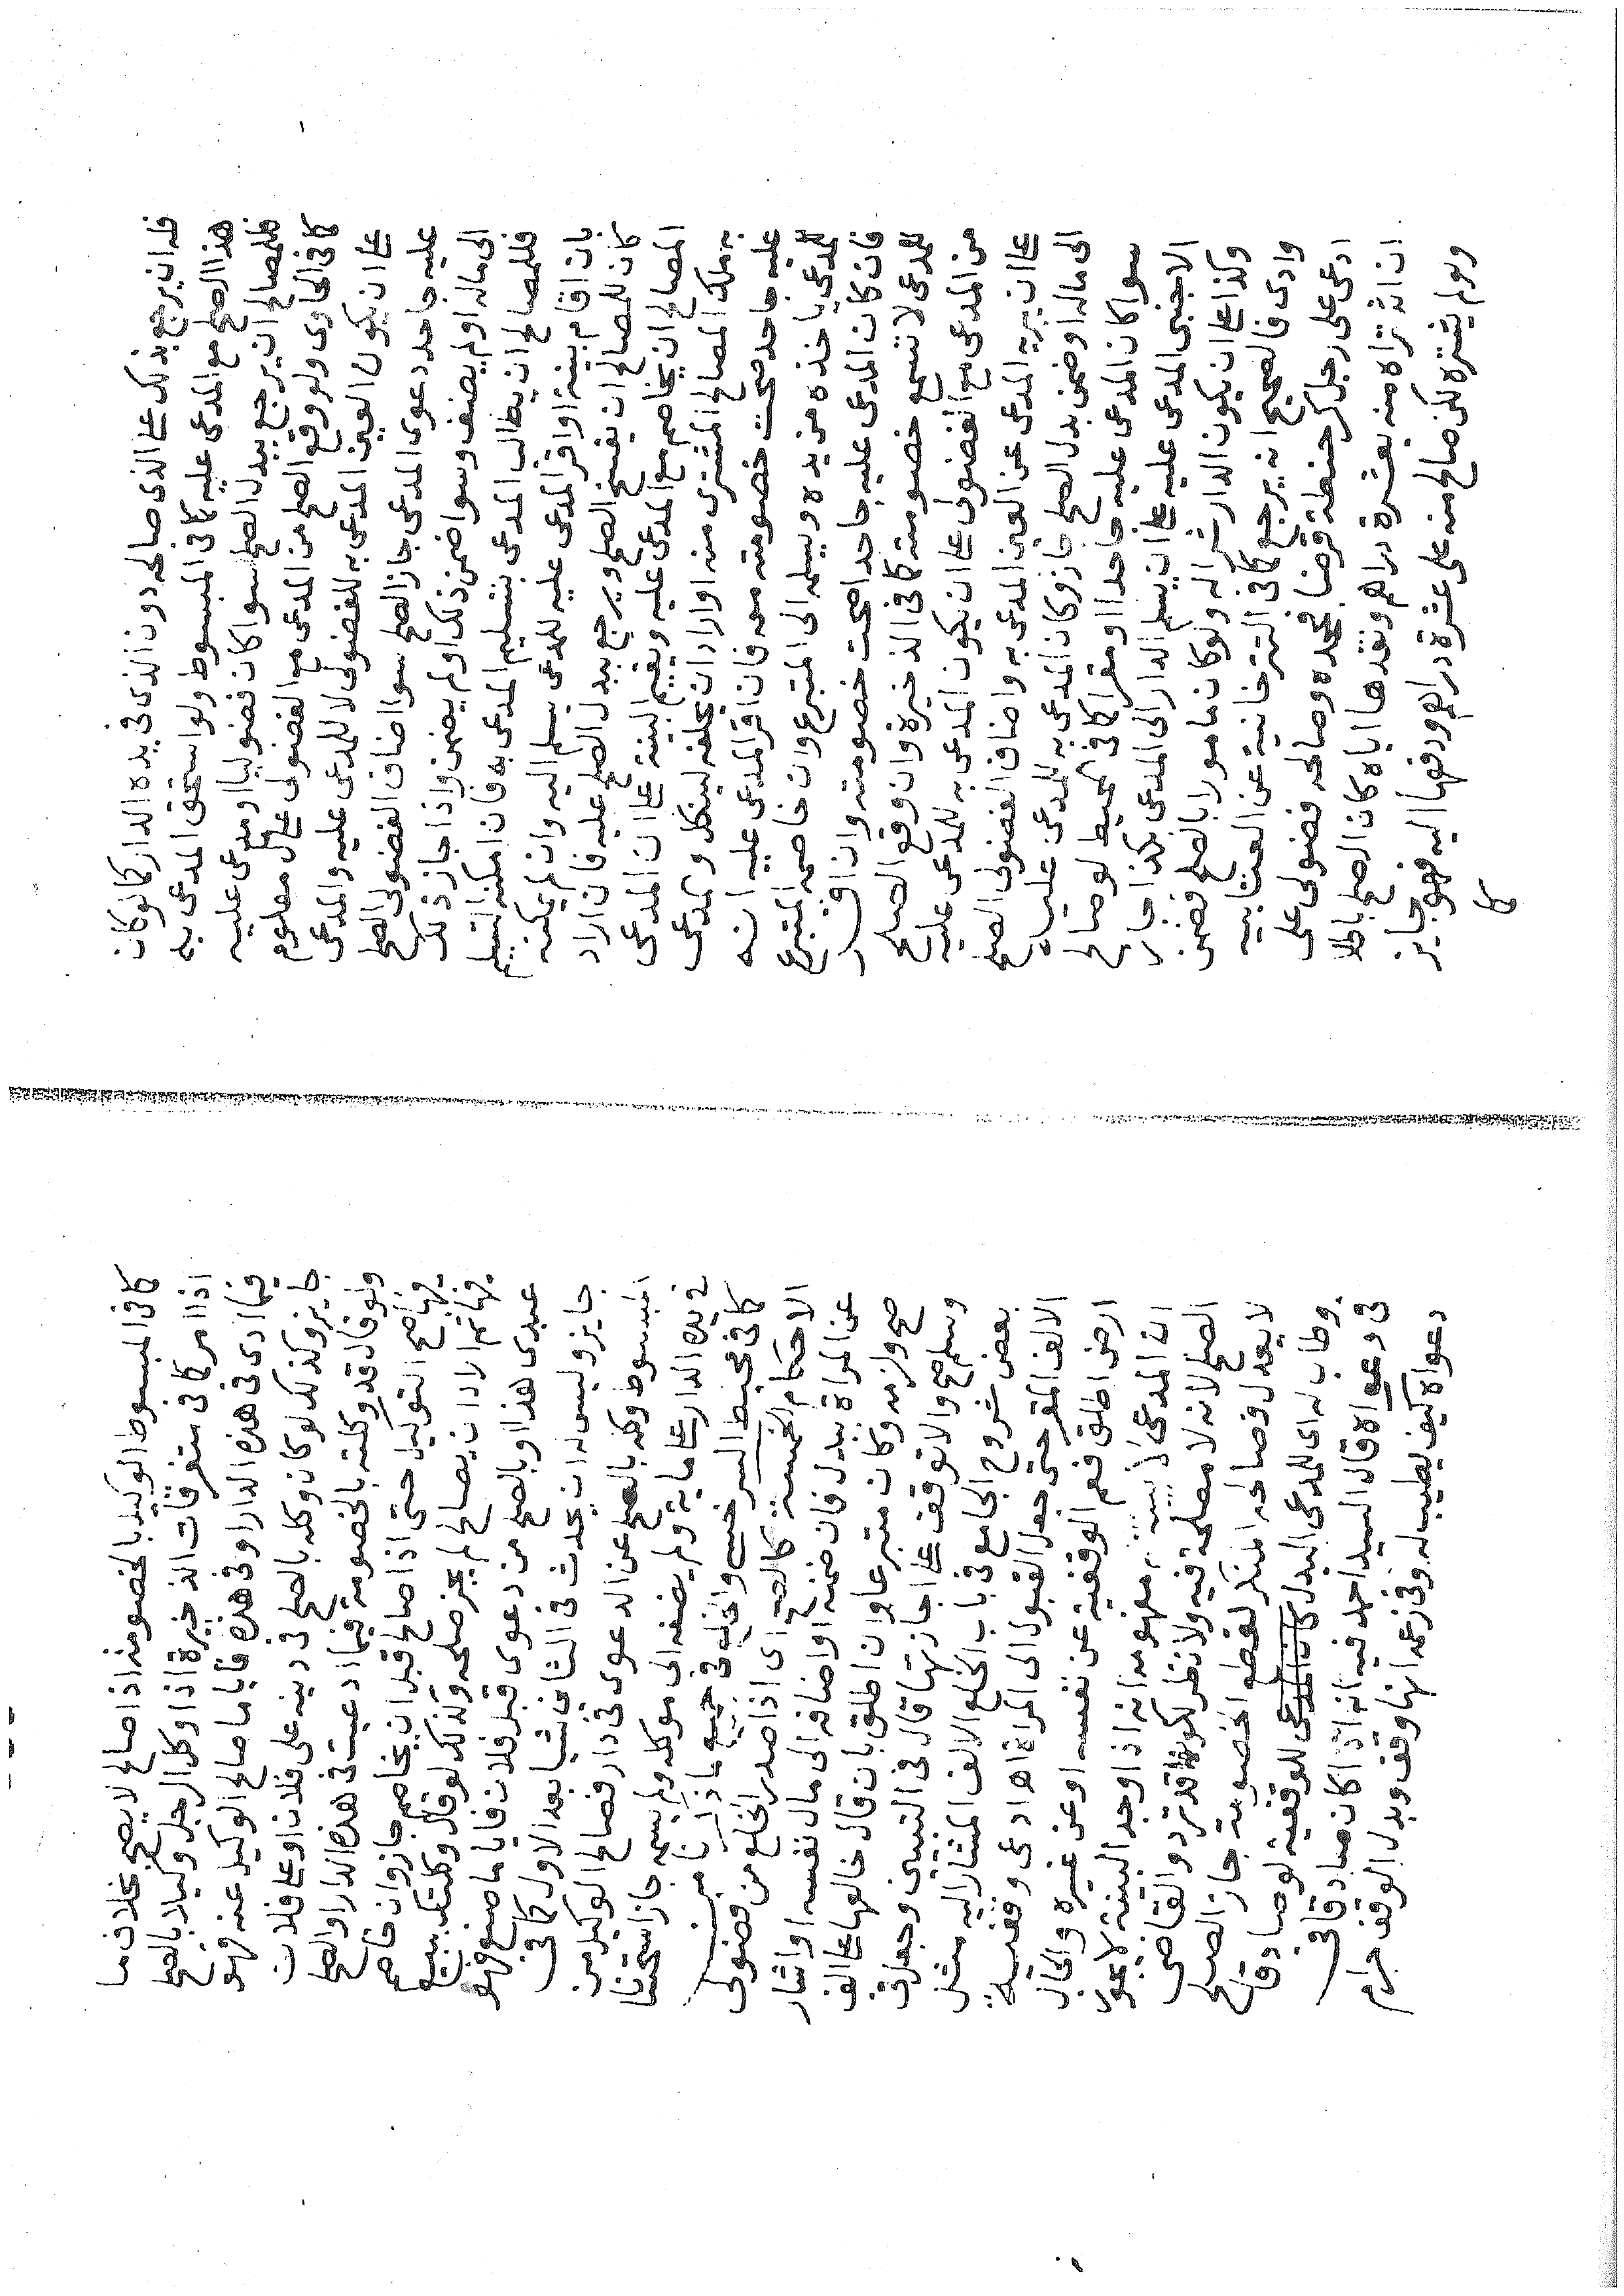 فله ان يرجع بذلك على الذى صالحه دون الذى فى يده الدار كما لو كان
هذا الصلح مع المدعى عليه كما فى المبسوط ولو استحق المدعى به
فللمصالح ان يرجع ببدل الصلح سوا كان فضوليا او مدعى عليه
كما فى الحاوى ولو وقع الصلح من المدعى مع الفضولى على مال معلوم
على ان يكون العين المدعى به للفضولى لا للمدعى عليه والمدعى
عليه جاحد دعوى المدعى جاز الصلح سوا اضاف الفضولى الصلح
الى ماله او لم يضف وسوا ضمن ذلك او لم يضمن واذا جاز ذلك
فللمصالح ان يطالب المدعى بتسليم المدعى به فان امكنه التسليم
بان اقام بينة او اقر المدعى عليه للمدعى يسلم اليه وان لم يمكنه
كان للمصالح ان يفسخ الصلح ويرجع ببدل الصلح عليه فان اراد
المصالح ان يخاصم مع المدعى عليه ويقيم البينة على ان المدعى
به ملك المصالح المشترى منه او اراد ان يحلفه لينكل والمدعى
عليه جاحد صحت خصومته معه فان اقر المدعى عليه انه
للمدعى ياخذه من يده ويسلمه الى المتبرع وان خاصمه المتبرع
فان كان المدعى عليه جاحدا صحت خصومته وان اقر
للمدعى لا تسمع خصومته كما فى الذخيرة وان وقع الصلح
من المدعى مع الفضولى على ان يكون المدعى به للمدعى عليه
على ان يبريه المدعى عن العين المدعى به واضاف الفضولى الصلح
الى ماله او ضمن بدل الصلح جاز وكان المدعى به للمدعى عليه
سوا كان المدعى عليه جاحدا او مقرا كما فى المحيط لو صالح
الاجنبى المدعى عليه على ان يسلم الدار الى المدعى بكذا جاز
وكذا على ان يكون الدار شراله ولو كان مامورا بالصلح فضمن
وادى فالصحيح انه يرجع كما فى التترخانية عن العتابيه
ادعى على رجل كر حنطة قرضا فجحده وصالحه فضولى على
ان اشتراه منه بعشرة دراهم ونقدها اياه كان الصلح باطلا
ولو لم يشتره لكن صالح منه على عشرة دراهم ودفعها اليه فهو جايز
كا
كما فى المبسوط الوكيل بالخصومة اذا صالح لا يصح بخلاف ما
اذا امر كما فى متفرقات الذخيرة اذا وكل الرجل وكيلا بالصلح
فيما ادى فى هذه الدار او فى هذه فايا ما صالح الوكيل عنه فهو
جايز وكذلك لو كان وكله بالصلح فى دينه على فلان او على فلان
ولو قال قد وكلته بالخصومة فيما ادعيت فى هذه الدار او الصلح
فيها صح التوكيل حتى اذا صالح قبل ان يخاصم جاز وان خاصم
فيها ثم اراد ان يصالح لم يجز صلحه وكذلك لو قال وكلتك ببيع
عبدى هذا او بالصلح من دعوى قبل فلان فايا ما صنع فهو
جايز وليس له ان يحدث فى الثانى شيا بعد الاول كما فى
المبسوط وكله بالصلح عن الدعوى فى دار فصالح الوكيل من
فى يده الدار على ماية ولم يضفه الى موكله ولم يسمه جاز استحسانا
كما فى محيط السرخسى والخلع فى جميع ما ذكرنا من
الاحكام الخمسة كالصلح اى اذا صدر الخلع من فضولى
عن المراة ببدل فان ضمنه او اضافه الى مال نفسه او اشار
صح ولزمه وكان متبرعا وان اطلق بان قال خالعها على الف
وسلم صح والا توقف على اجازتها قال فى التبيين وجعل فى
بعض شروح الجامع فى باب الخلع الالف المشار اليه مثل
الالف المقر حتى جعل القبول الى المراة اه ادعى وقفية
ارض اطلق فعم الوقفية عن نفسه او عن غيره والحال
ان المدعى لا بينة له مفهومه انه اذا وجد البينة لا يجوز
الصلح لانه لا مصلحة فيه ولا نظر لكونه قد تردد القاضى
لا يعدل فصالحه المنكر لقطع الخصومة جاز الصلح
وطاب له اى للمدعى البدل كان المدعى للوقفية لو صادقا فى
فى دعواه قال السيد احمد فيه انه اذا كان صادقا فى
دعواه كيف يطيب له وفى زعمه انها وقف وبدل الوقف حرام